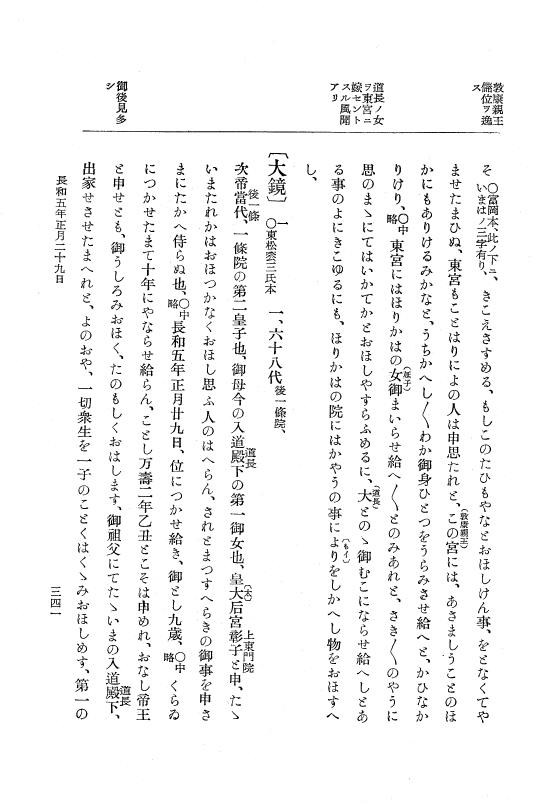 敦康親王
儲位ヲ逸
ス
道長ノ女
ヲ東宮ニ
嫁セント
スル風聞
アリ
御後見多
シ
そ〇富岡本、此ノ下ニ、いまはノ三字有り、きこえさすめる、もしこのたひもやなとおほしけん事、をとなくてや
ませたまひぬ、東宮もことはりによの人は申思たれと、この宮には、あさましうことのほ
(敦康親王)
かにもありけるみかなと、うちかへし〳〵わか御身ひとつをうらみさせ給へと、かひなか
りけり、〇中略東宮にはほりかはの女御まいらせ給へ〳〵とのみあれと、さき〳〵のやうに
(延子)
思のまゝにてはいかてかとおほしやすらふめるに、大とのゝ御むこにならせ給へしとあ
(道長)
る事のよにきこゆるにも、ほりかはの院にはかやうの事によりをしかへし物をおほすへ
(もイ)
し、
〔大鏡〕一〇東松雲三氏本一、六十八代後一條院、
次帝當代、一條院の第二皇子也、御母今の入道殿下の第一御女也、皇太后宮彰子と申、たゝ
後一條
道長
(太)
上東門院
いまたれかはおほつかなくおほし思ふ人のはへらん、されとまつすへらきの御事を申さ
まにたかへ侍らぬ也、〇中略長和五年正月廿九日、位につかせ給き、御とし九歳、〇中略くらゐ
につかせたまて十年にやならせ給らん、ことし万壽二年乙丑とこそは申めれ、おなし帝王
と申せとも、御うしろみおほく、たのもしくおはします、御祖父にてたゝいまの入道殿下、
道長
出家せさせたまへれと、よのおや、一切衆生を一子のことくはくゝみおほしめす、第一の
長和五年正月二十九日
三四一